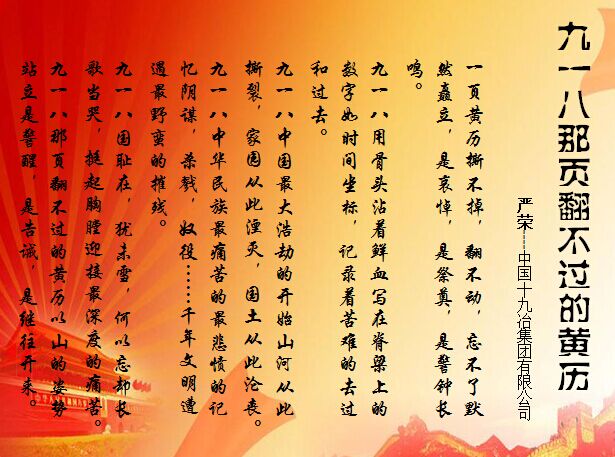 九一八那页翻不过的黄历
严荣-----中国十九冶集团有限公司
一页黄历撕不掉，翻不动，忘不了默
然矗立，是哀悼，是祭奠，是警钟长
鸣。
九一八用骨头沾着鲜血写在脊梁上的
数字如时间坐标，记录着苦难的去过
和过去。
九一八中国最大浩劫的开始山河从此
撕裂，家园从此湮灭，国土从此沦丧。
九一八中华民族最痛苦的最悲愤的记
忆阴谋，杀戮，奴役……千年文明遭
遇最野蛮的摧残。
九一八国耻在，犹未雪，何以忘却长
歌当哭，挺起胸膛迎接最深度的痛苦。
九一八那页翻不过的黄历以山的姿势
站立是警醒，是告诫，是继往开来。